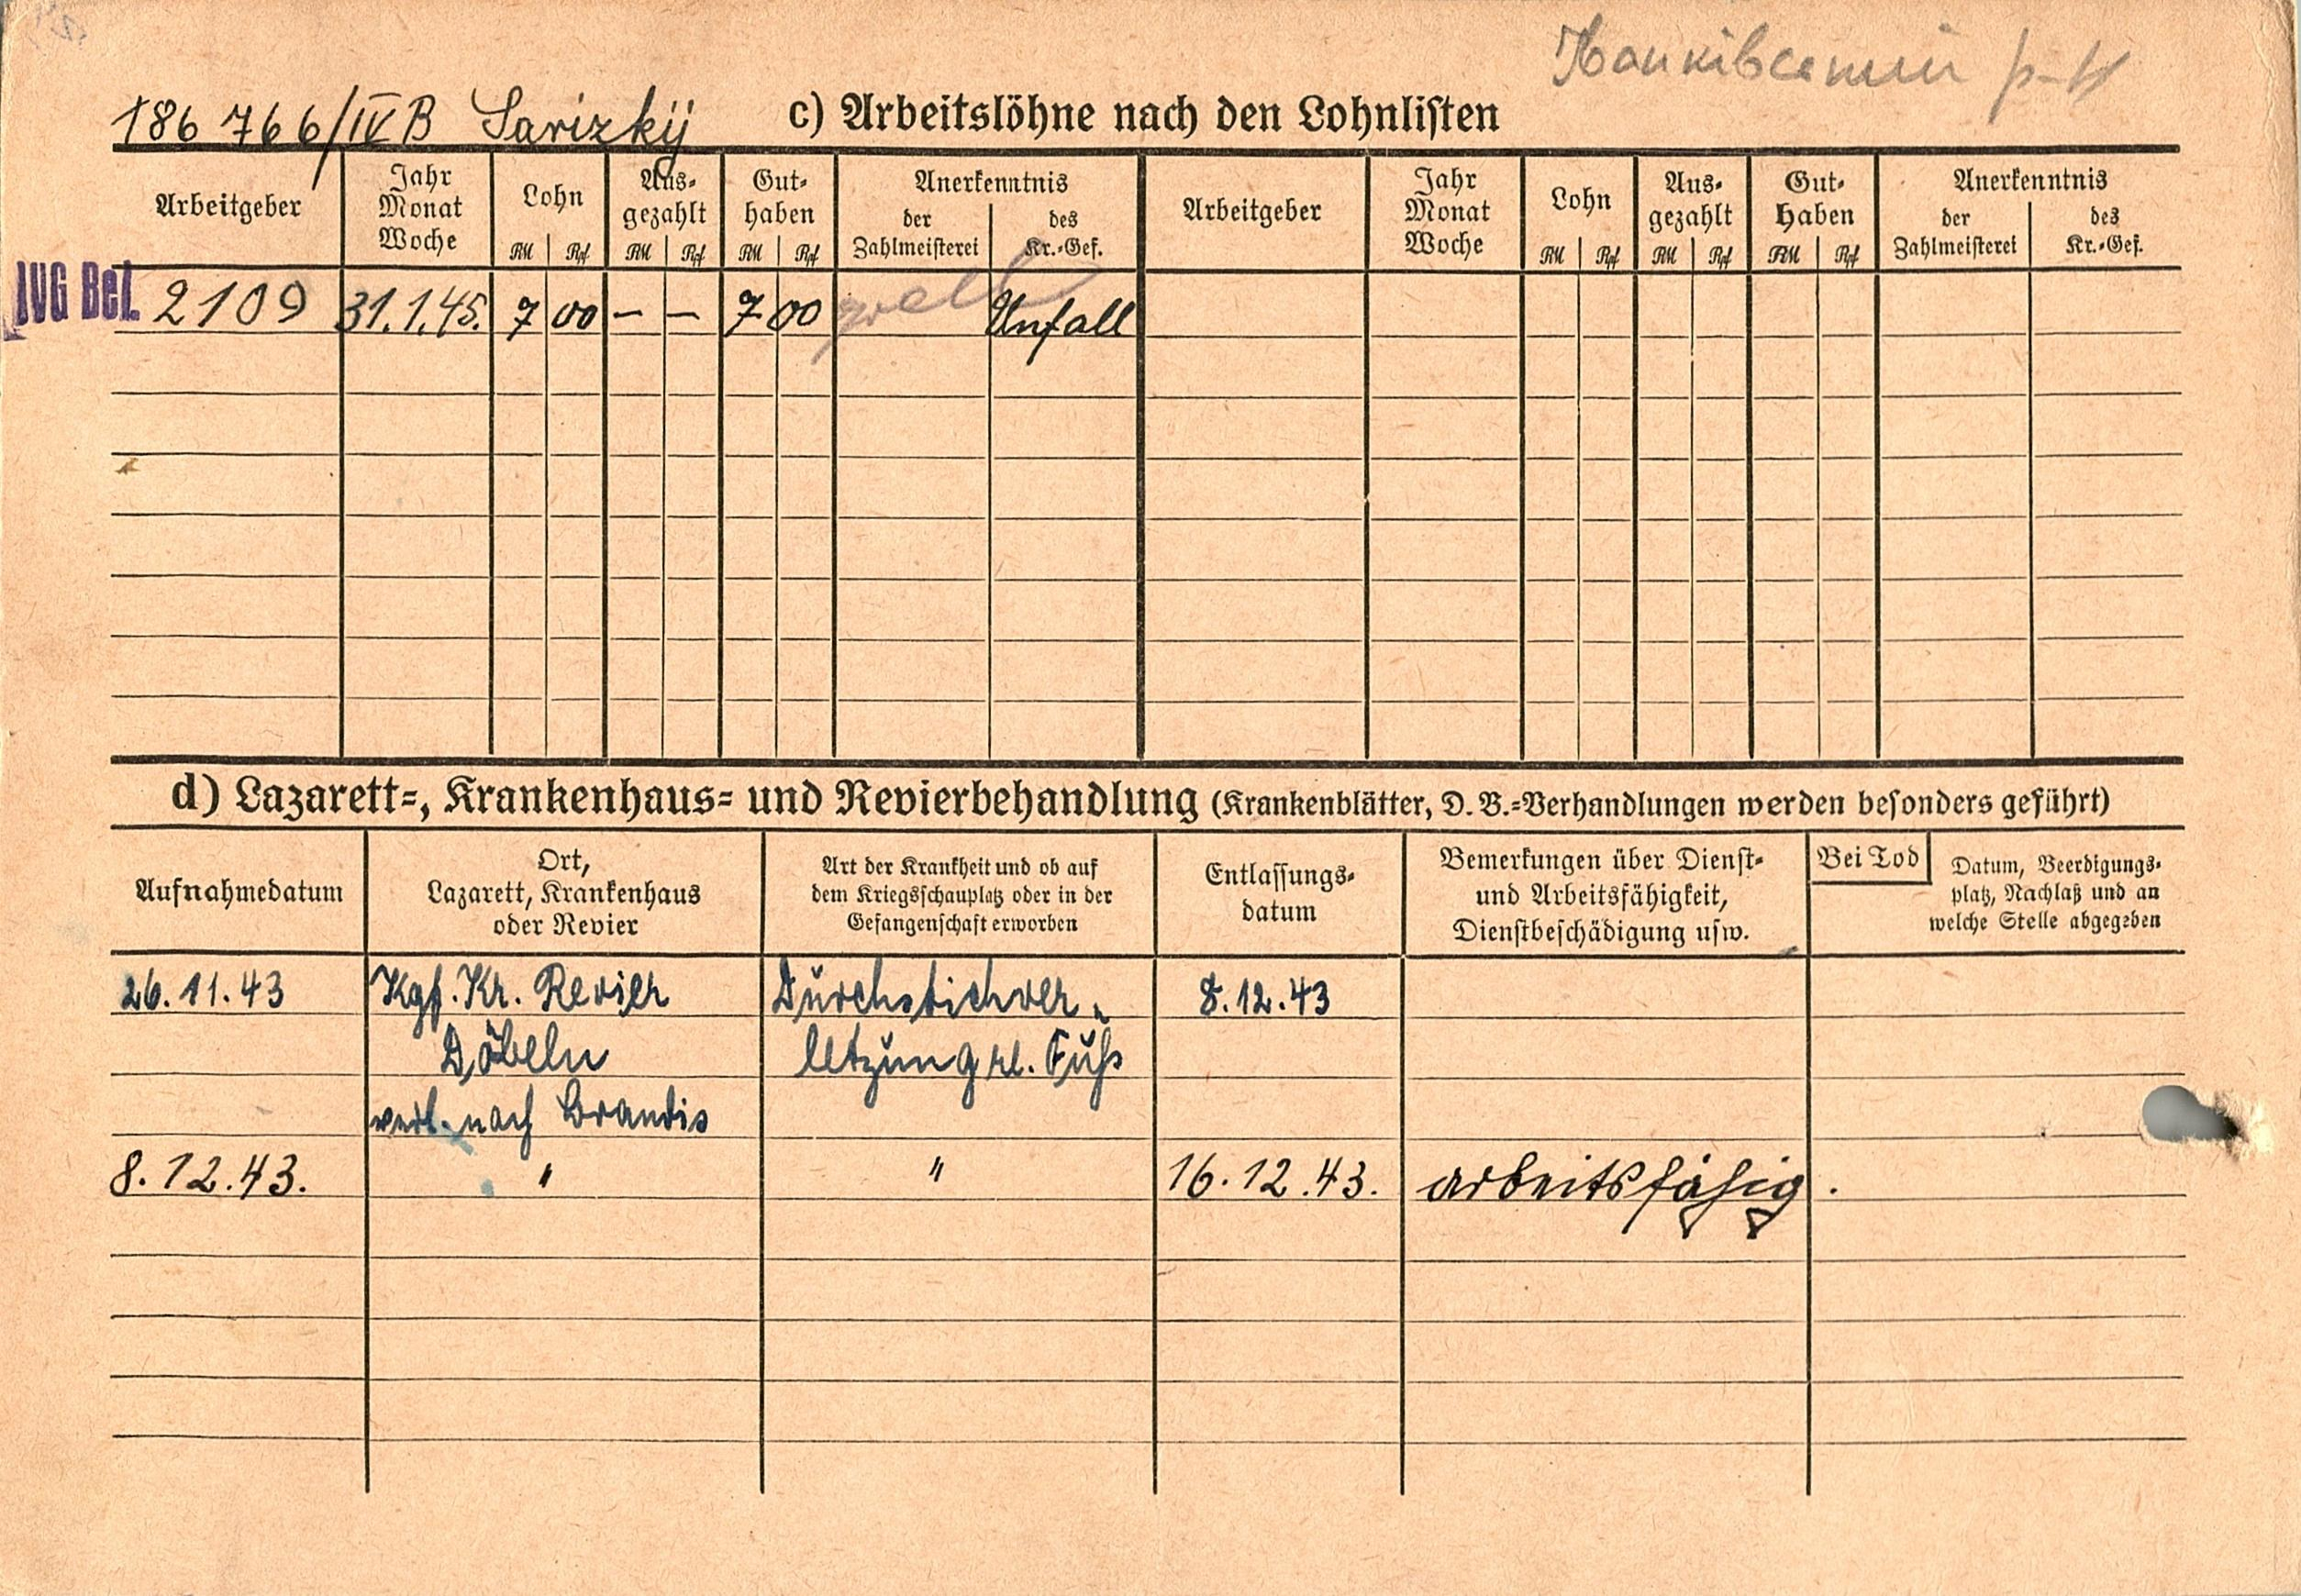 186 766/IV B Sarizkij
c) Arbeitslöhne nach den Lohnlisten
Arbeitgeber
Jahr
Monat
Woche
Lohn
RM Rpf
Aus-
gezahlt
RM Rpf
Gut-
haben
RM Rpf
Anerkenntnis
der
Zahlmeisterei
des
Kr.-Gef.
Arbeitgeber
Jahr
Monat
Woche
Lohn
RM Rpf
Aus-
gezahlt
RM Rpf
Gut-
haben
RM Rpf
Anerkenntnis
der
Zahlmeisterei
des
Kr.-Gef.
IVG Bel. 2109 31.1.45. 7 00 – – 7 00 Unfall
d) Lazarett-, Krankenhaus- und Revierbehandlung (Krankenblätter, D. B.-Verhandlungen werden besonders geführt)
Aufnahmedatum
Ort,
Lazarett, Krankenhaus
oder Revier
Art der Krankheit und ob auf
dem Kriegsschauplatz oder in der
Gefangenschaft erworben
Entlassungs-
datum
Bemerkungen über Dienst-
und Arbeitsfähigkeit,
Dienstbeschädigung usw.
Bei Tod
Datum, Beerdigungs-
platz, Nachlaß und an
welche Stelle abgegeben
26.11.43 Kgf. Kr. Revier Durchstichver- 8.12.43
Döbeln letzung rl. Fuß
verl. nach Brandis
8.12.43. " " 16.12.43. arbeitsfähig.